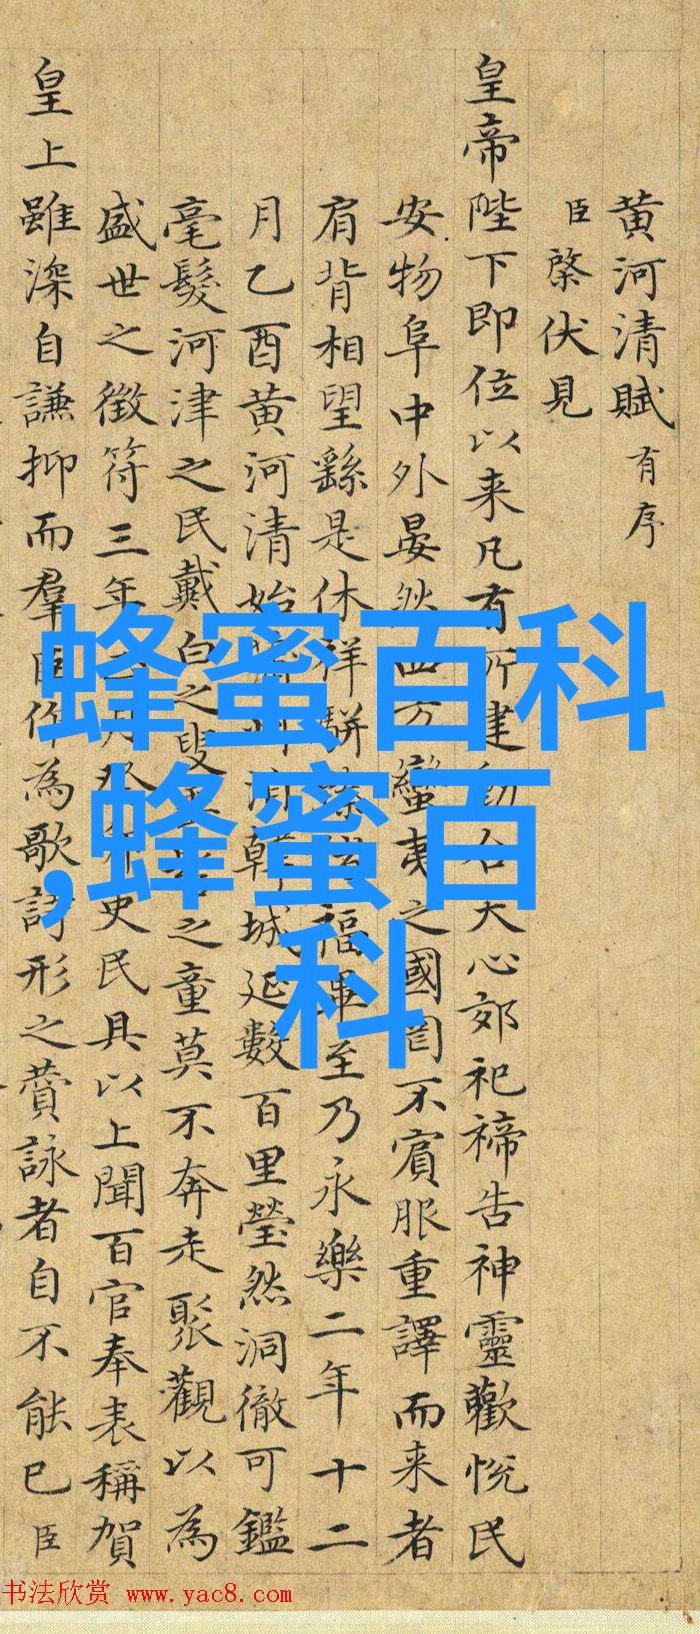 黄河清賦 有序
臣棨伏見
皇帝陛下即位以来凡有所建動合天心郊祀禘告神靈歡悅民
安物阜中外晏然四方蠻夷之國罔不賓服重譯而来者
肩背相望繇是休祥駢臻福畢至乃永樂二年十二
月乙酉黄河清始州韓城延數百里瑩然洞徹可鑑
毫髮河津之民戴白之叟之童莫不奔走聚觀以為
盛世之徵符三年月史民具以上聞百官奉表稱賀
皇上雖深自謙抑而羣臣作為歌詩形之賛詠者自不能已臣
蜂蜜百科
,蜂蜜百
科
书法欣赏 www.yac8.com